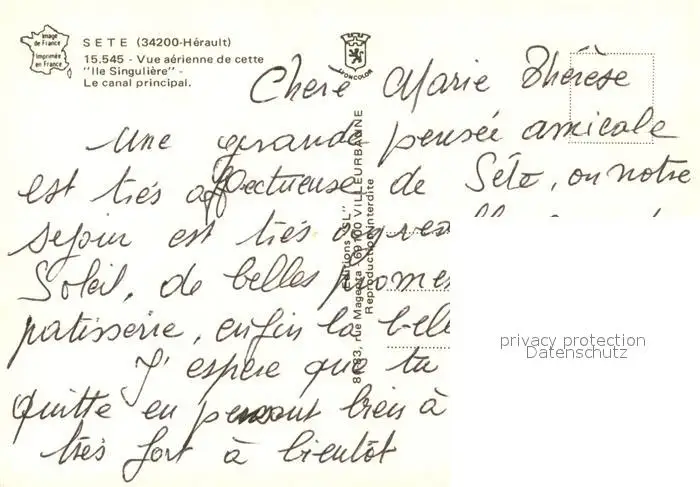 Image
de France
Imprimée
en France
SETE (34200-Hérault)
15.545 - Vue aérienne de cette
"Ile Singulière" -
Le canal principal.
IRISCOLOR
Editions "SL"
83/83, rue Magenta 69100 VILLEURBANNE
Reproduction interdite
Chere Marie Thérèse
Une grande pensée amicale
est très affectueuse de Séte, ou notre
sejour est très
Soleil, de belles
patisserie, enfin la belle
J'espère que tu
quitte en pensant bien à
très fort à bientôt
privacy protection
Datenschutz